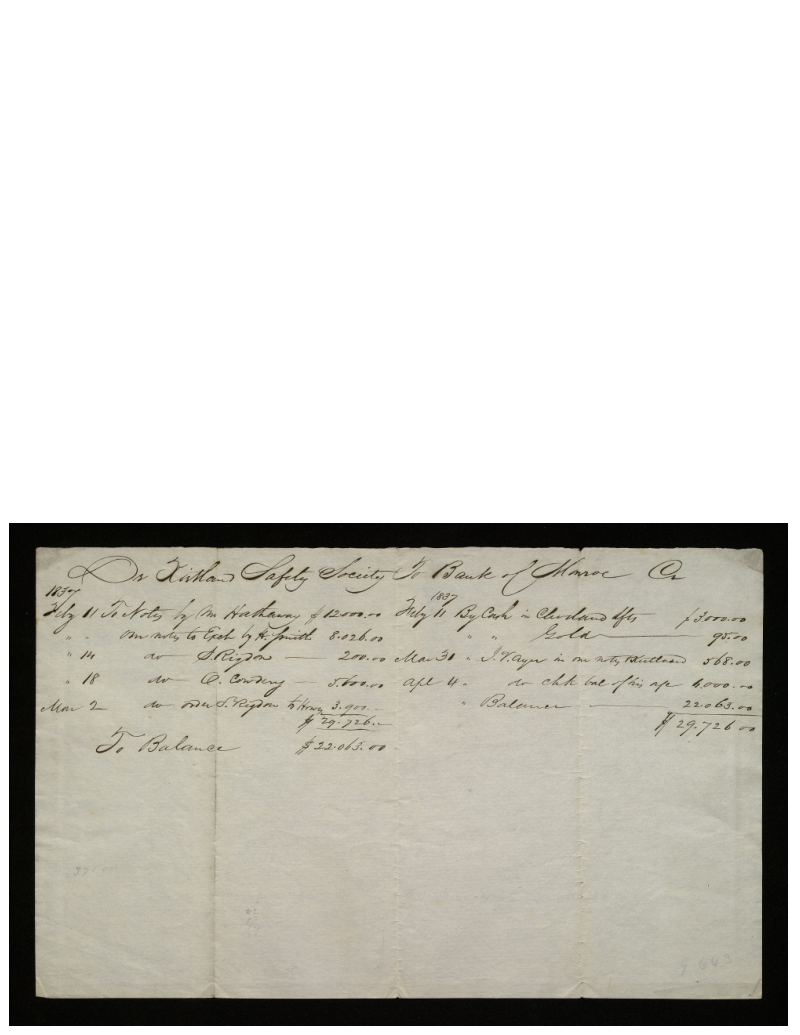 Dr Kirtland Safety Society To Bank of Monroe Cr
1837
Feby 11 To Notes by M Hathaway $12000.00
" " our notes to Exch by H. Smith 8.026.00
" 14 do S. Rigdon — 200.00
" 18 do O. Cowdery — 5.600.00
Mar 2 do order S. Rigdon to 3.900.—
$29.726.—
To Balance $22.063.00
1837
Feby 11 By Cash in Cleveland $3000.00
" " Gold — 95.00
Mar 31 " J. V. Ayer in our notes 568.00
Apl 4 " do chk bal of his 4,000.00
" Balance — 22.063.00
$29.726 00